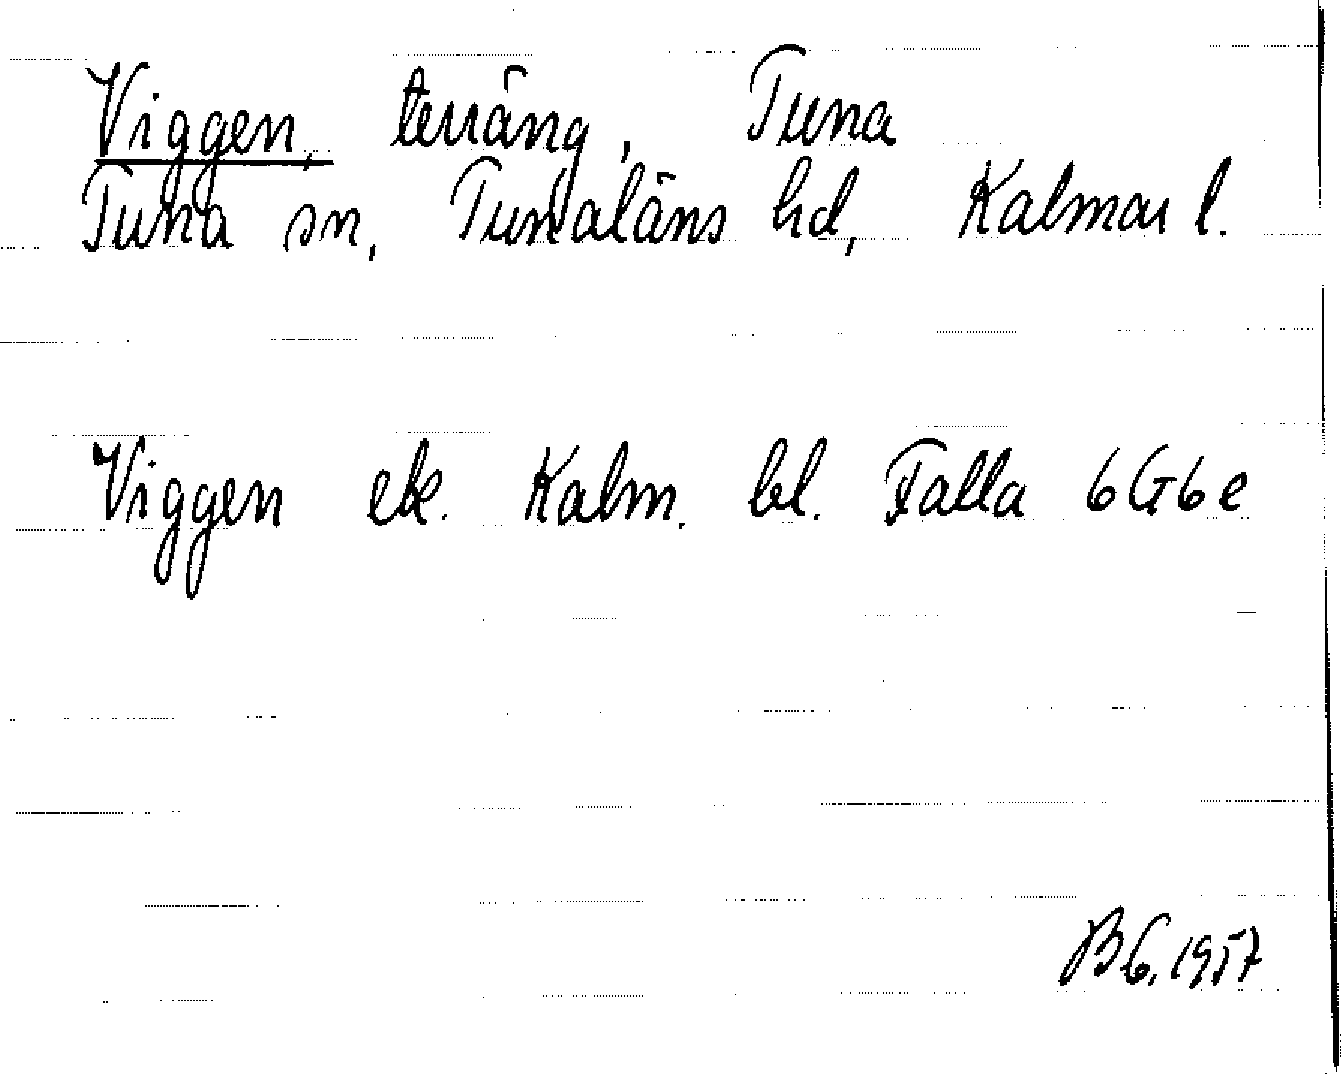 Viggen, terräng, Tuna
Tuna sn, Tunaläns hd, Kalmar l.
Viggen ek. Kalm. bl. Falla 6G6e
BG. 1957